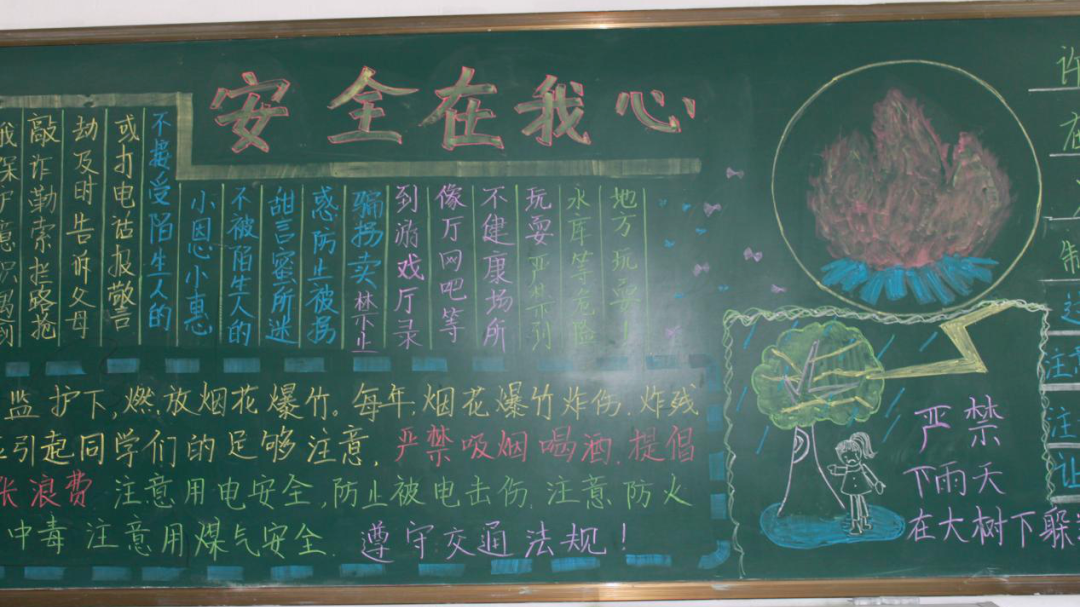 安全在我心
护意识遇到
敲诈勒索拦路抢
劫及时告诉父母
或打电话报警
不接受陌生人的
小恩小惠
不被陌生人的
甜言蜜所迷
惑防止被拐
骗拐卖禁止
到游戏厅录
像厅网吧等
不健康场所
玩耍严禁到
水库等危险
地方玩耍！
监护下,燃放烟花爆竹。每年,烟花爆竹炸伤.炸残
引起同学们的足够注意,严禁吸烟喝酒.提倡
浪费 注意用电安全,防止被电击伤.注意防火
中毒 注意用煤气安全. 遵守交通法规！
严禁
下雨天
在大树下躲
许
在
制
注意
注
让